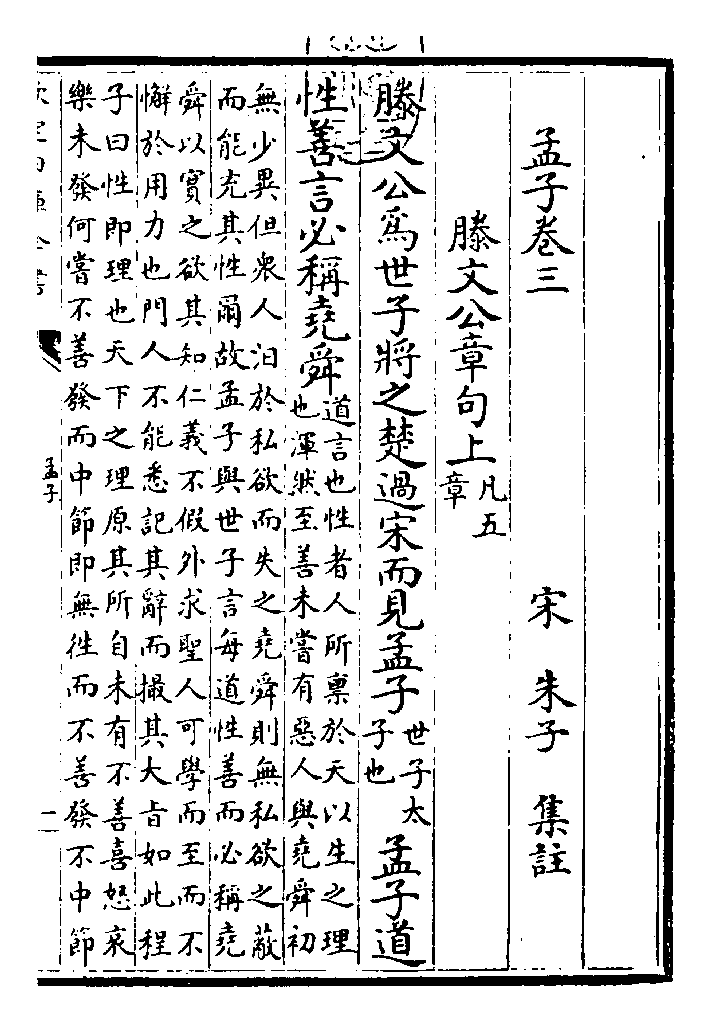 孟子卷三　宋　朱子　集註
滕文公章句上凡五
章
滕文公爲世子將之楚過宋而見孟子世子太
子也孟子道
性善言必稱堯舜道言也性者人所稟於天以生之理
也渾然至善未嘗有惡人與堯舜初
無少異但衆人汨於私欲而失之堯舜則無私欲之蔽
而能充其性爾故孟子與世子言每道性善而必稱堯
舜以實之欲其知仁義不假外求聖人可學而至而不
懈於用力也門人不能悉記其辭而撮其大旨如此程
子曰性即理也天下之理原其所自未有不善喜怒哀
樂未發何嘗不善發而中節即無徃而不善發不中節
欽定四庫全書
孟子
一